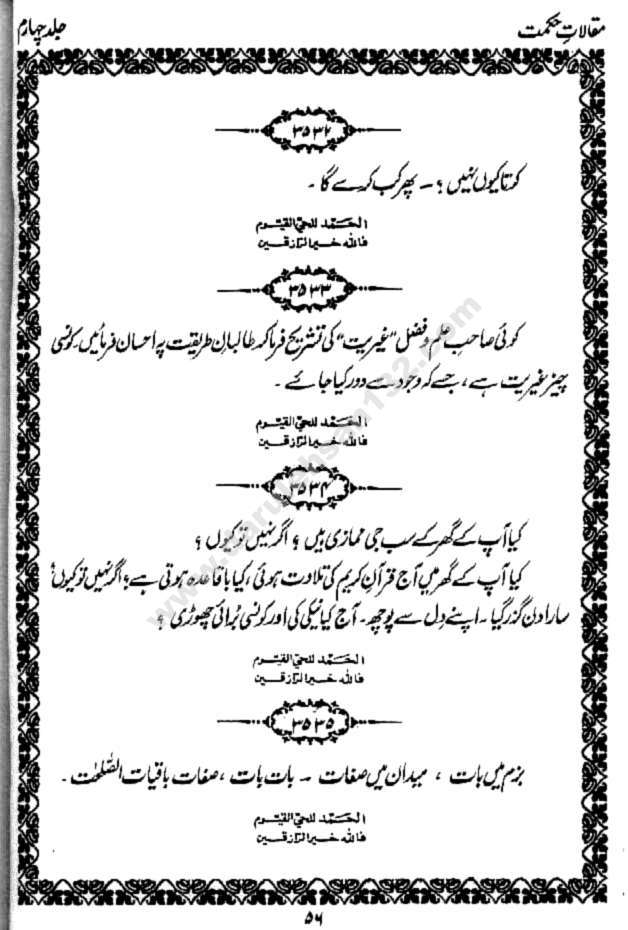 مقالاتِ حکمت
جلد چہارم
۳۵۳۲
کرتا کیوں نہیں ؟ – پھر کب کرے گا ۔
الحَمد للحیّ القیّوم
فاللہ خیرالرازقین
۳۵۳۳
کوئی صاحبِ علم و فضل "غیریت" کی تشریح فرما کر طالبانِ طریقت پہ احسان فرمائیں۔ کونسی
چیز غیریت ہے ، جسے کہ وجود سے دور کیا جائے ۔
الحَمد للحیّ القیّوم
فاللہ خیرالرازقین
۳۵۳۴
کیا آپ کے گھر کے سب جی نمازی ہیں ؟ اگر نہیں تو کیوں ؟
کیا آپ کے گھر میں آج قرآنِ کریم کی تلاوت ہوئی ، کیا باقاعدہ ہوتی ہے ؟ اگر نہیں تو کیوں ؟
سارا دن گذر گیا ۔ اپنے دِل سے پوچھ ۔ آج کیا نیکی کی اور کونسی بُرائی چھوڑی ؟
الحَمد للحیّ القیّوم
فاللہ خیرالرازقین
۳۵۳۵
بزم میں بات ، میدان میں صفات – بات بات ، صفات باقیات الصّٰلحٰت ۔
الحَمد للحیّ القیّوم
فاللہ خیرالرازقین
۵۶